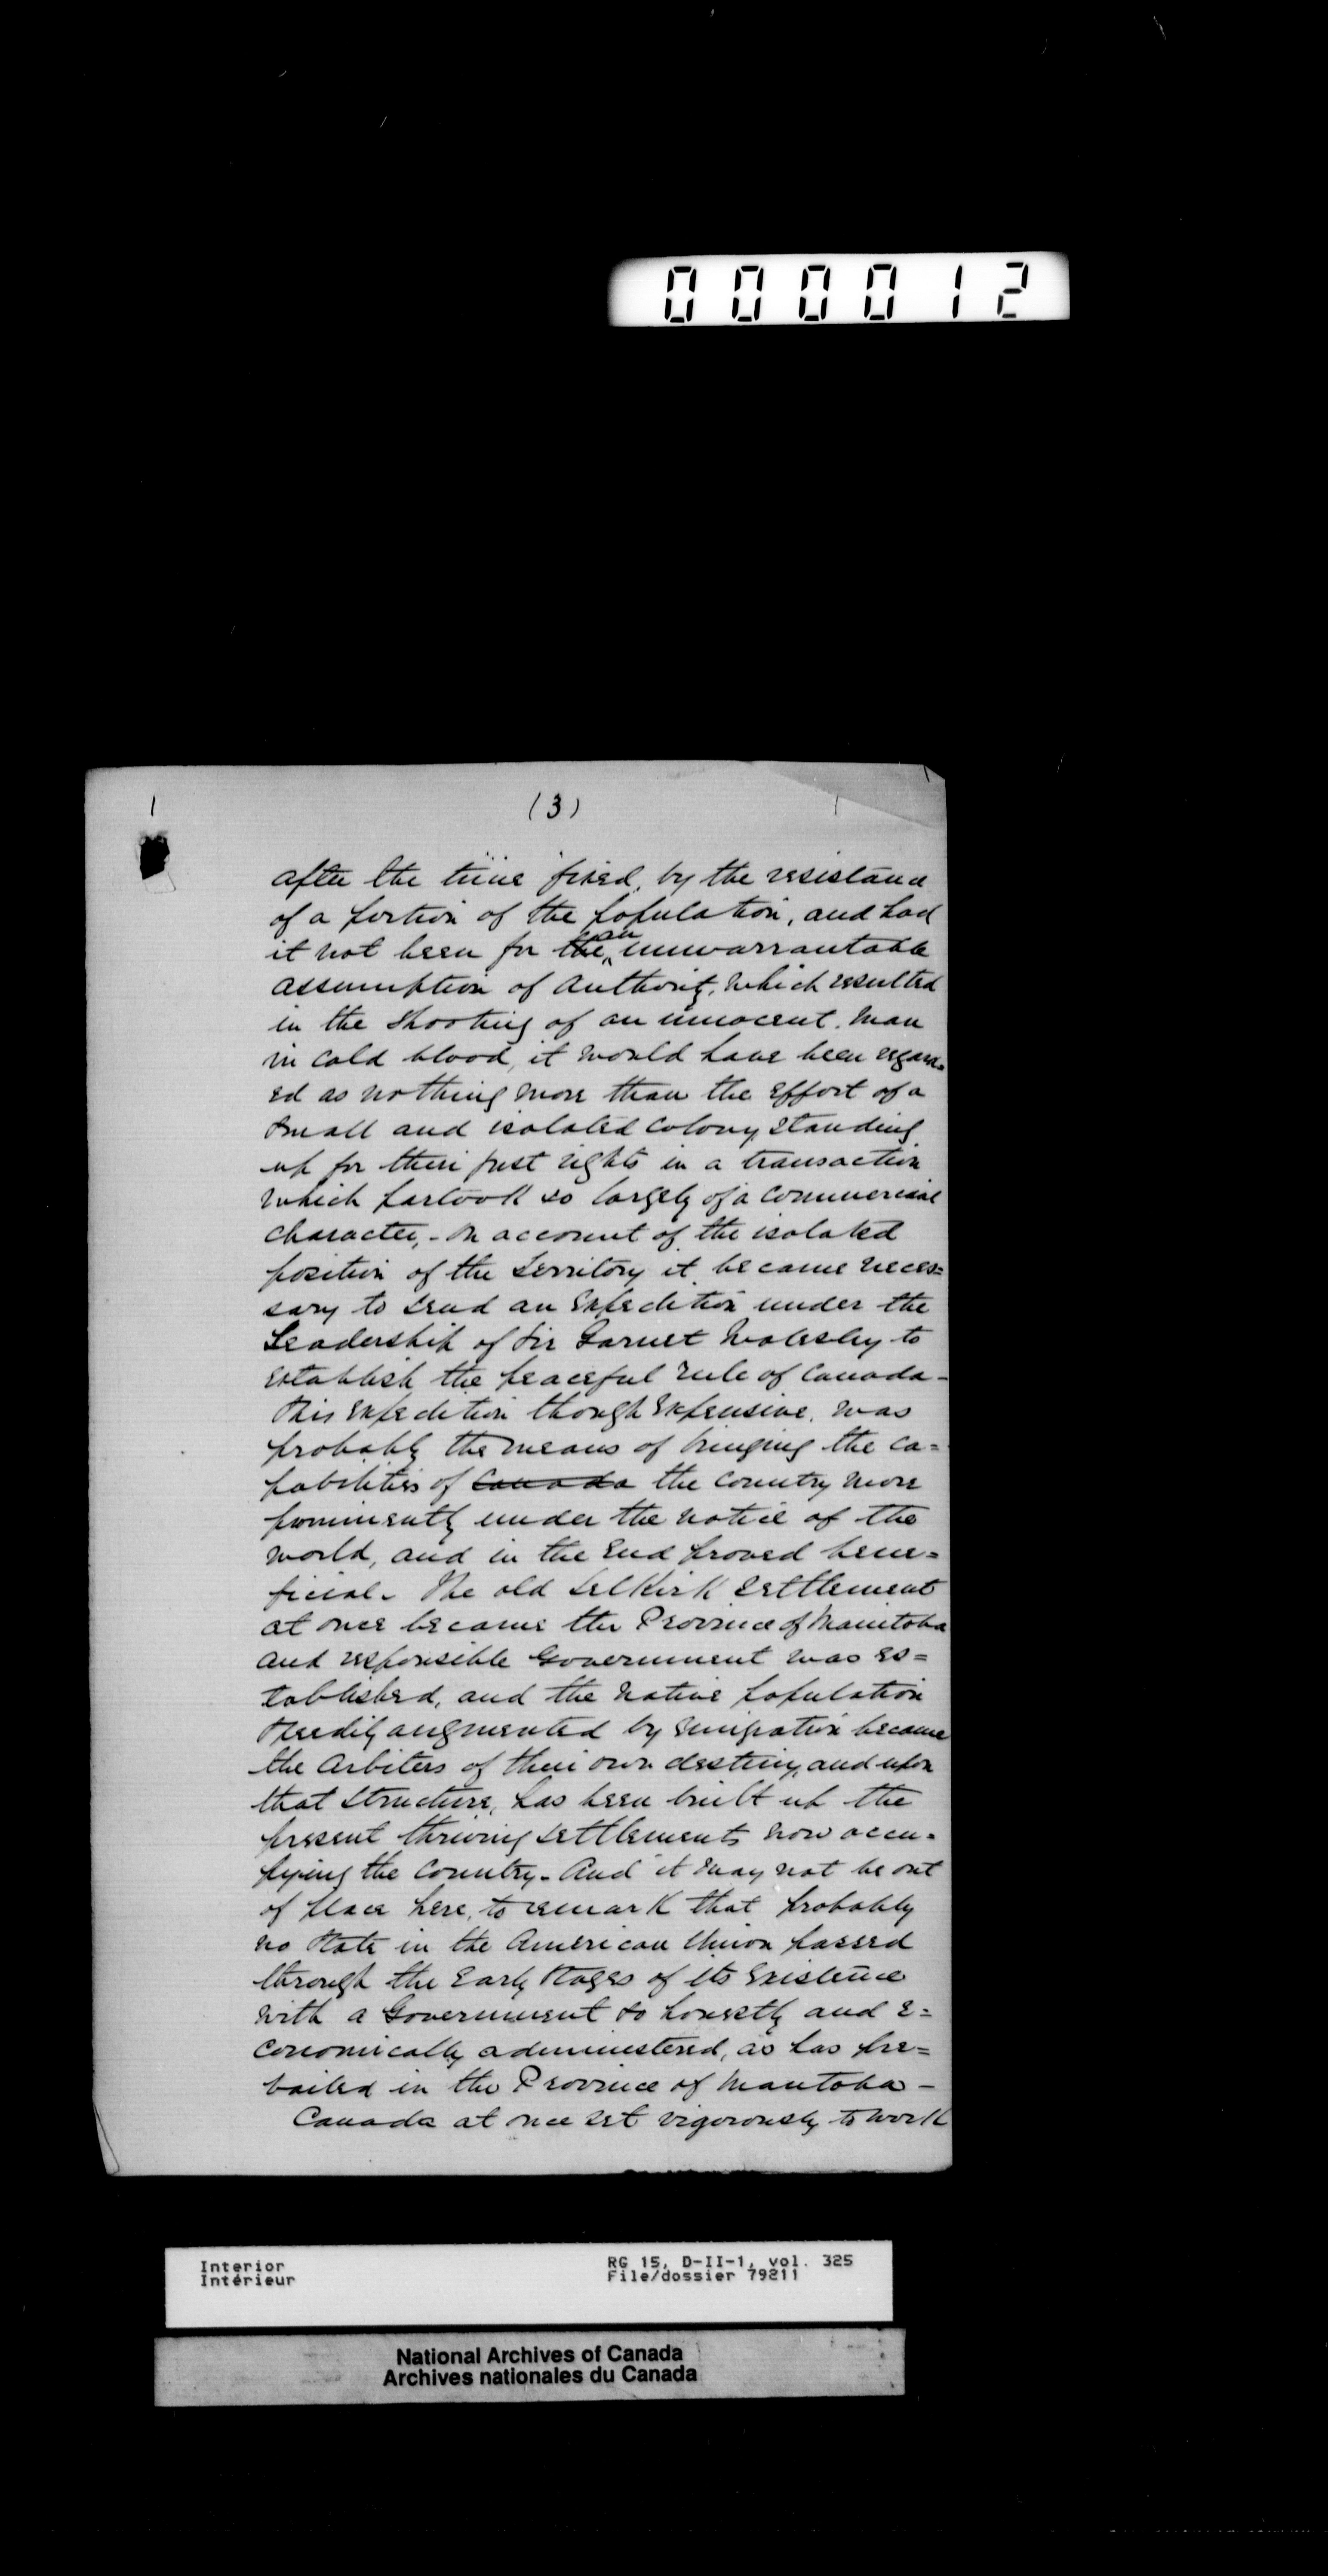 000012
(3)
after the time fixed, by the resistance
of a portion of the population, and had
it not been for the an unwarrantable
assumption of authority, which resulted
in the shooting of an innocent man
in cold blood, it would have been regard=
ed as nothing more than the effort of a
small and isolated colony standing
up for their just rights in a transaction
which partook so largely of a commercial
character, - On account of the isolated
position of the Territory it became neces=
sary to send an expedition under the
Leadership of Sir Garnet Wolesley to
establish the peaceful rule of Canada -
This expedition though expensive, was
probably the means of bringing the ca=
pabilities of Canada the country more
prominently under the notice of the
world, and in the end proved bene=
ficial. The old Selkirk settlement
at once became the Province of Manitoba
and responsible Government was es=
tablished, and the native population
steadily augmented by emigration became
the arbiters of their own destiny, and upon
that structure, has been built up the
present thriving settlements now occu=
pying the country - And it may not be out
of place here, to remark that probably
no State in the American Union passed
through the early stages of its existence
with a Government so honestly and e=
conomically administered, as has pre=
vailed in the Province of Manitoba -
Canada at once set vigorously to work
Interior
Intérieur
RG 15, D-II-1, vol. 325
File/dossier 79211
National Archives of Canada
Archives nationales du Canada